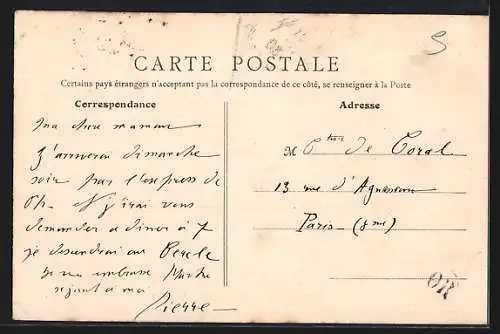 CARTE POSTALE
Certains pays étrangers n'acceptant pas la correspondance de ce côté, se renseigner à la Poste
Correspondance
Adresse
ma chère maman
J'arriverai dimanche
soir par l'express de
6h. et j'irai vous
demander à diner à 7
je descendrai au Cercle
je vous embrasse
Pierre
M Ctesse de Coral
13 rue d'Aguesseau
Paris (8me)
OR